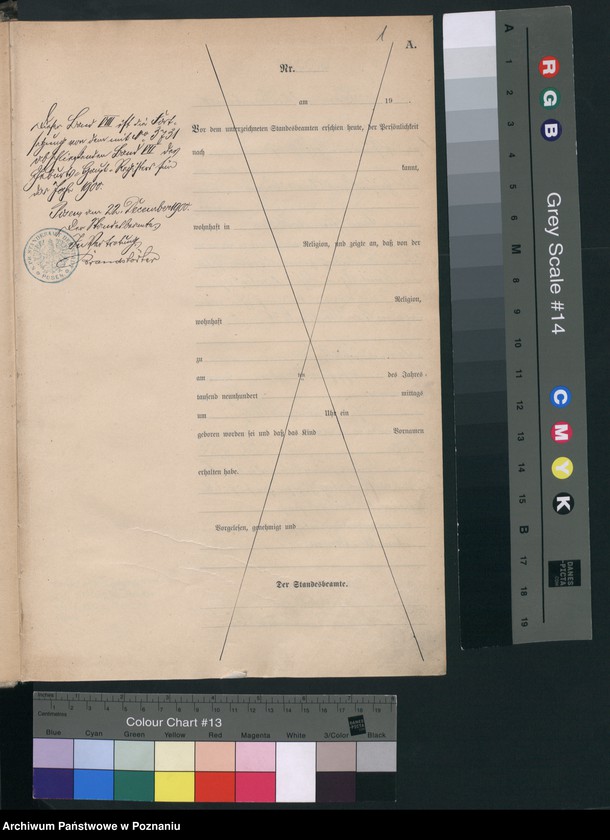 1
A.
Nr.
am 19
Vor dem unterzeichneten Standesbeamten erschien heute, der Persönlichkeit
nach
kannt,
wohnhaft in
Religion, und zeigte an, daß von der
Religion,
wohnhaft
zu
am ten des Jahres
tausend neunhundert mittags
um Uhr ein
geboren worden sei und daß das Kind Vornamen
erhalten habe.
Vorgelesen, genehmigt und
Der Standesbeamte.
Dieser Band VIII ist die Fort-
setzung von dem mit No 3731
abschließenden Band VII des
Geburts-Haupt-Registers für
das Jahr 1900.
Posen am 22. Dezember 1900.
Der Standesbeamte
In Vertretung
A
1
2
3
4
5
6
M
8
9
10
11
12
13
14
15
B
17
18
19
R
G
B
Grey Scale #14
C
M
Y
K
DANES
-PICTA
.COM
Inches
Centimetres
Colour Chart #13
DANES
PICTA
Blue Cyan Green Yellow Red Magenta White 3/Color Black
Archiwum Państwowe w Poznaniu